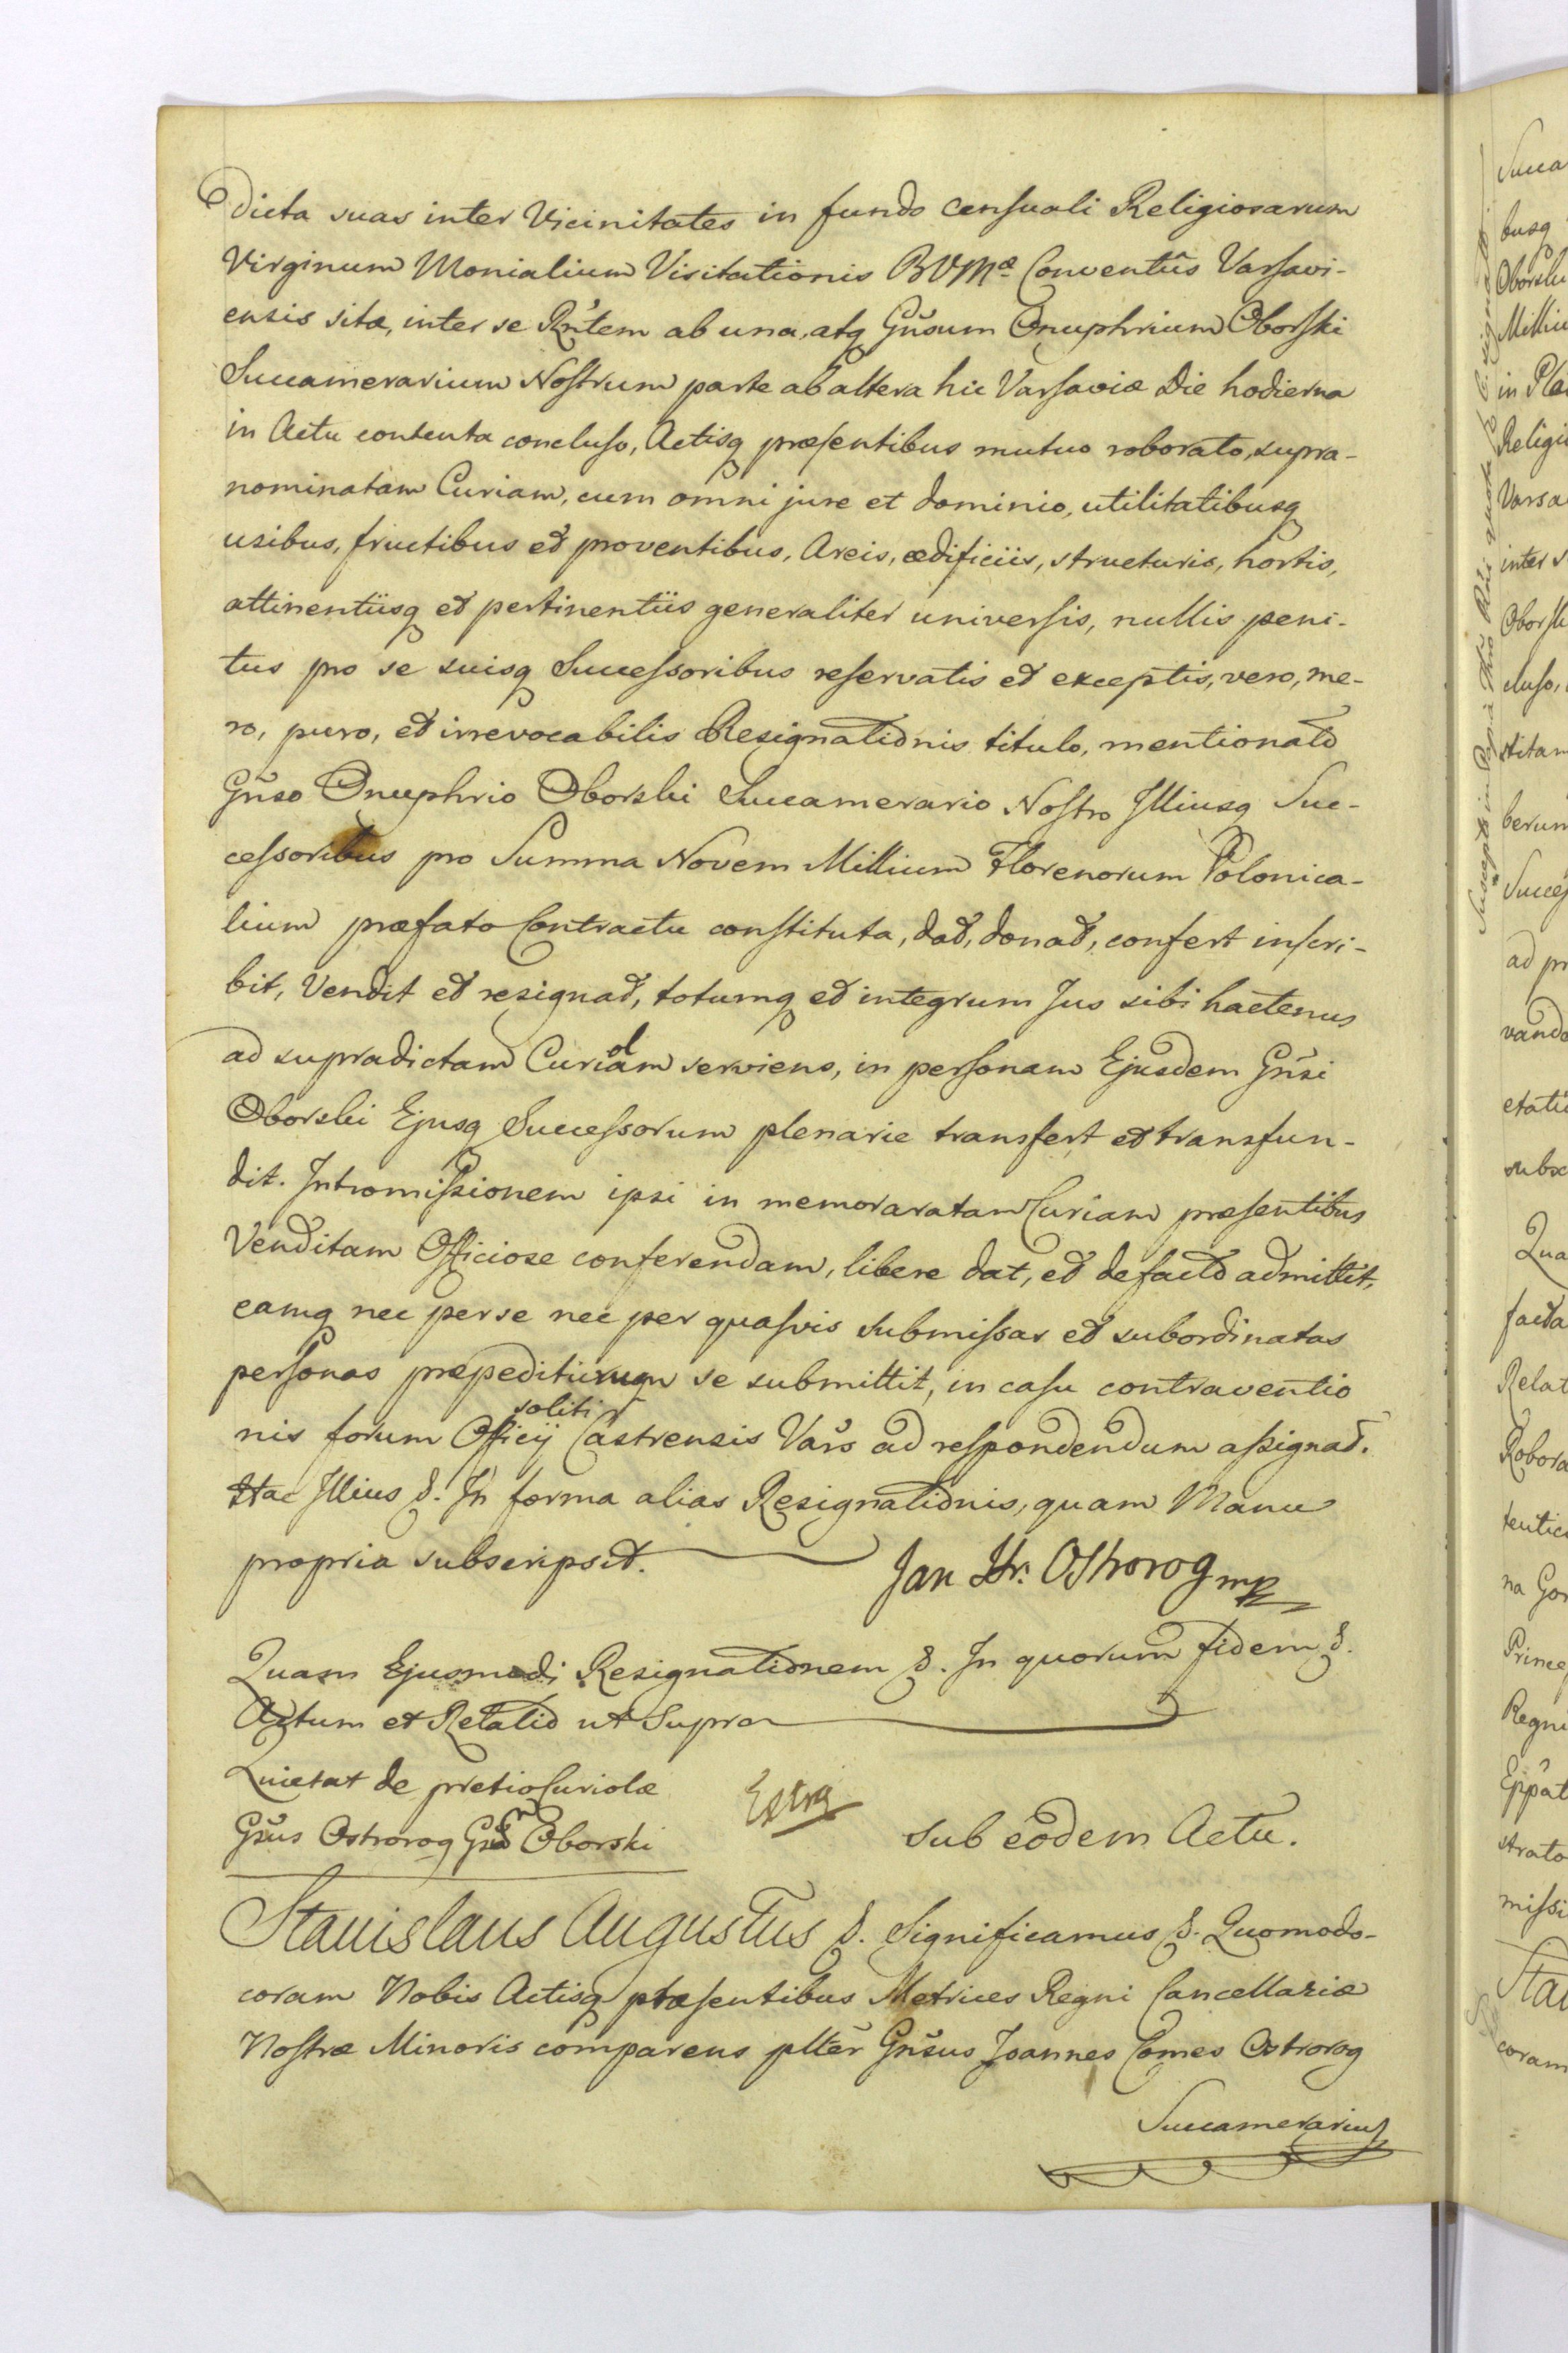 Dicta suas inter Vicinitates in fundo Censuali Religiosarum
Virginum Monialium Visitationis BVMæ Conventûs Varsavi-
ensis sitæ, inter se Rñtem ab una, atq Gñsum Onuphrium Oborski
Succamerarium Nostrum parte ab altera hic Varsaviæ Die hodierna
in Actu contenta concluso, Actisq præsentibus mutuo roborato, supra-
nominatam Curiam, cum omni jure et dominio, utilitatibusq
usibus, fructibus et proventibus, Areis, ædificiis, structuris, hortis,
attinentiisq et pertinentiis generaliter universis, nullis peni-
tus pro se suisq Successoribus reservatis et exceptis, vero, me-
ro, puro, et irrevocabilis Resignationis titulo, mentionato
Gñso Onuphrio Oborski Succamerario Nostro Illiusq Suc-
cessoribus pro Summa Novem Millium Florenorum Polonica-
lium præfato Contractu constituta, dat, donat, confert inscri-
bit, Vendit et resignat, totumq et integrum Jus sibi hactenus
ad supradictam Curiolam serviens, in personam Ejusdem Gñsi
Oborski Ejusq Successorum plenarie transfert et transfun-
dit. Intromissionem ipsi in memoraratam Curiam præsentibus
Venditam Officiose conferendam, libere dat, et de facto admittit,
eamq nec per se nec per quasvis submissas et subordinatas
personas præpediturum se submittit, in casu contraventio
nis forum Officij soliti Castrensis Vars ad respondendum assignat.
Hac Illius &. In forma alias Resignationis, quam Manu
propria subscripsit.
Jan Hr. Ostrorog mp
Quam Ejusmodi Resignationem &. In quorum fidem &.
Actum et Relatio ut Supra
Quietat de pretio Curiolæ
Gñus Ostrorog Gñm Oborski
Extra
Sub eodem Actu.
Stanislaus Augustus &. Significamus &. Quomodo-
coram Nobis Actisq præsentibus Metrices Regni Cancellariæ
Nostræ Minoris comparens pltër Gñsus Joannes Comes Ostrorog
Succamerarius